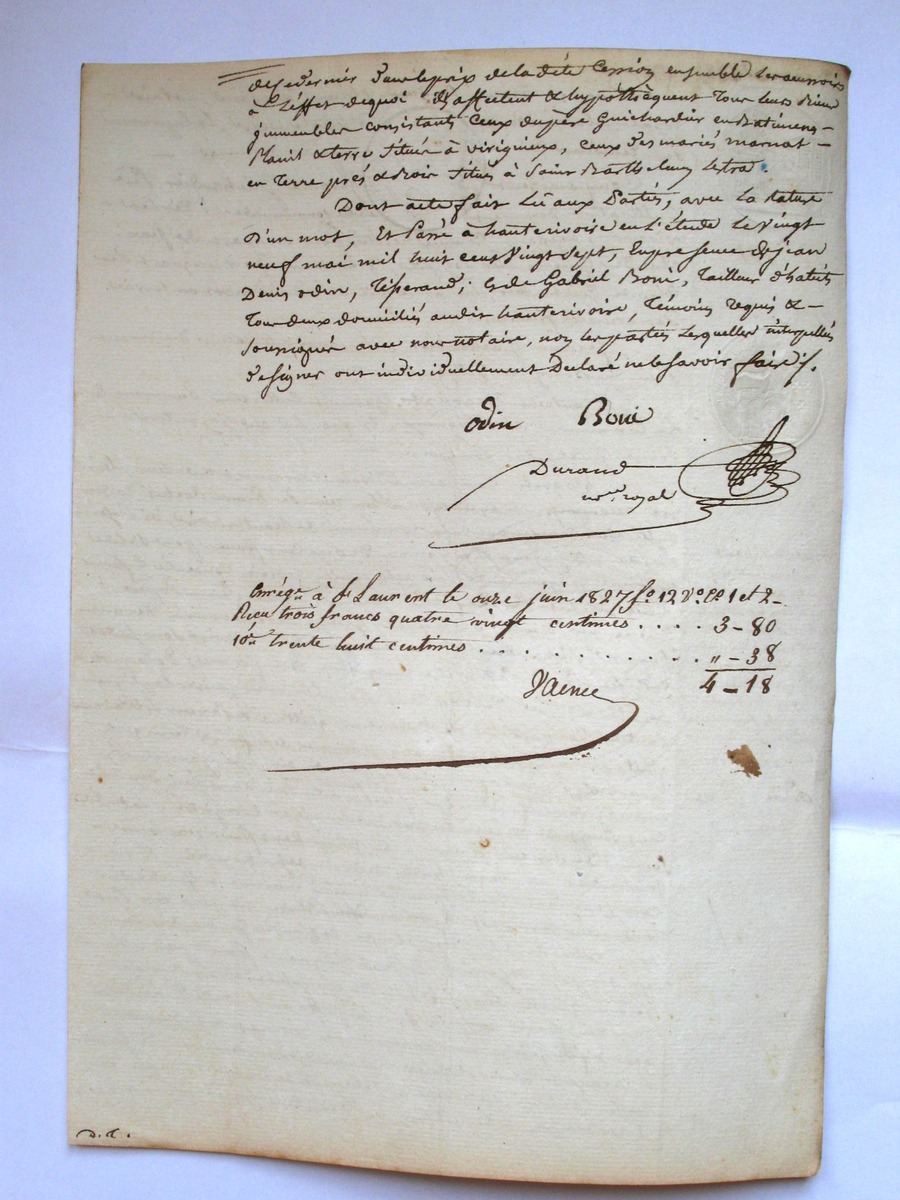 de ce dernier dans le prix de la dite Cession ensemble les accessoires
à L'effet de quoi ils affectent & hypothèquent Tous Leurs Biens
immeubles consistants Ceux du père Guichardier en Batiments
Planit & terre situés à virigneux, ceux des mariés marnat
en Terre prés & Bois situés à Saint Barthelemy Lestra.
Dont acte fait Lû aux Parties, avec La Rature
D'un mot, Et Passé à hauterivoire en L'étude Le vingt
neuf mai mil huit cent Vingt Sept, En presence de jean
Denis odin, Tisserand, & de Gabriel Boni, Tailleur d'habits
Tous deux domiciliés audit hauterivoire, Témoins requis &
soussignés avec nous notaire, non les parties Lesquelles interpellés
de signer ont individuellement Declaré ne le savoir faire /.
odin Boni
Durand
nre royal
Enrégé à St Laurent le onze juin 1827 fo 12 Vo Co 1 et 2
Reçu trois francs quatre vingt centimes .... 3-80
10e trente huit centimes .......... " - 38
4-18
D. R.